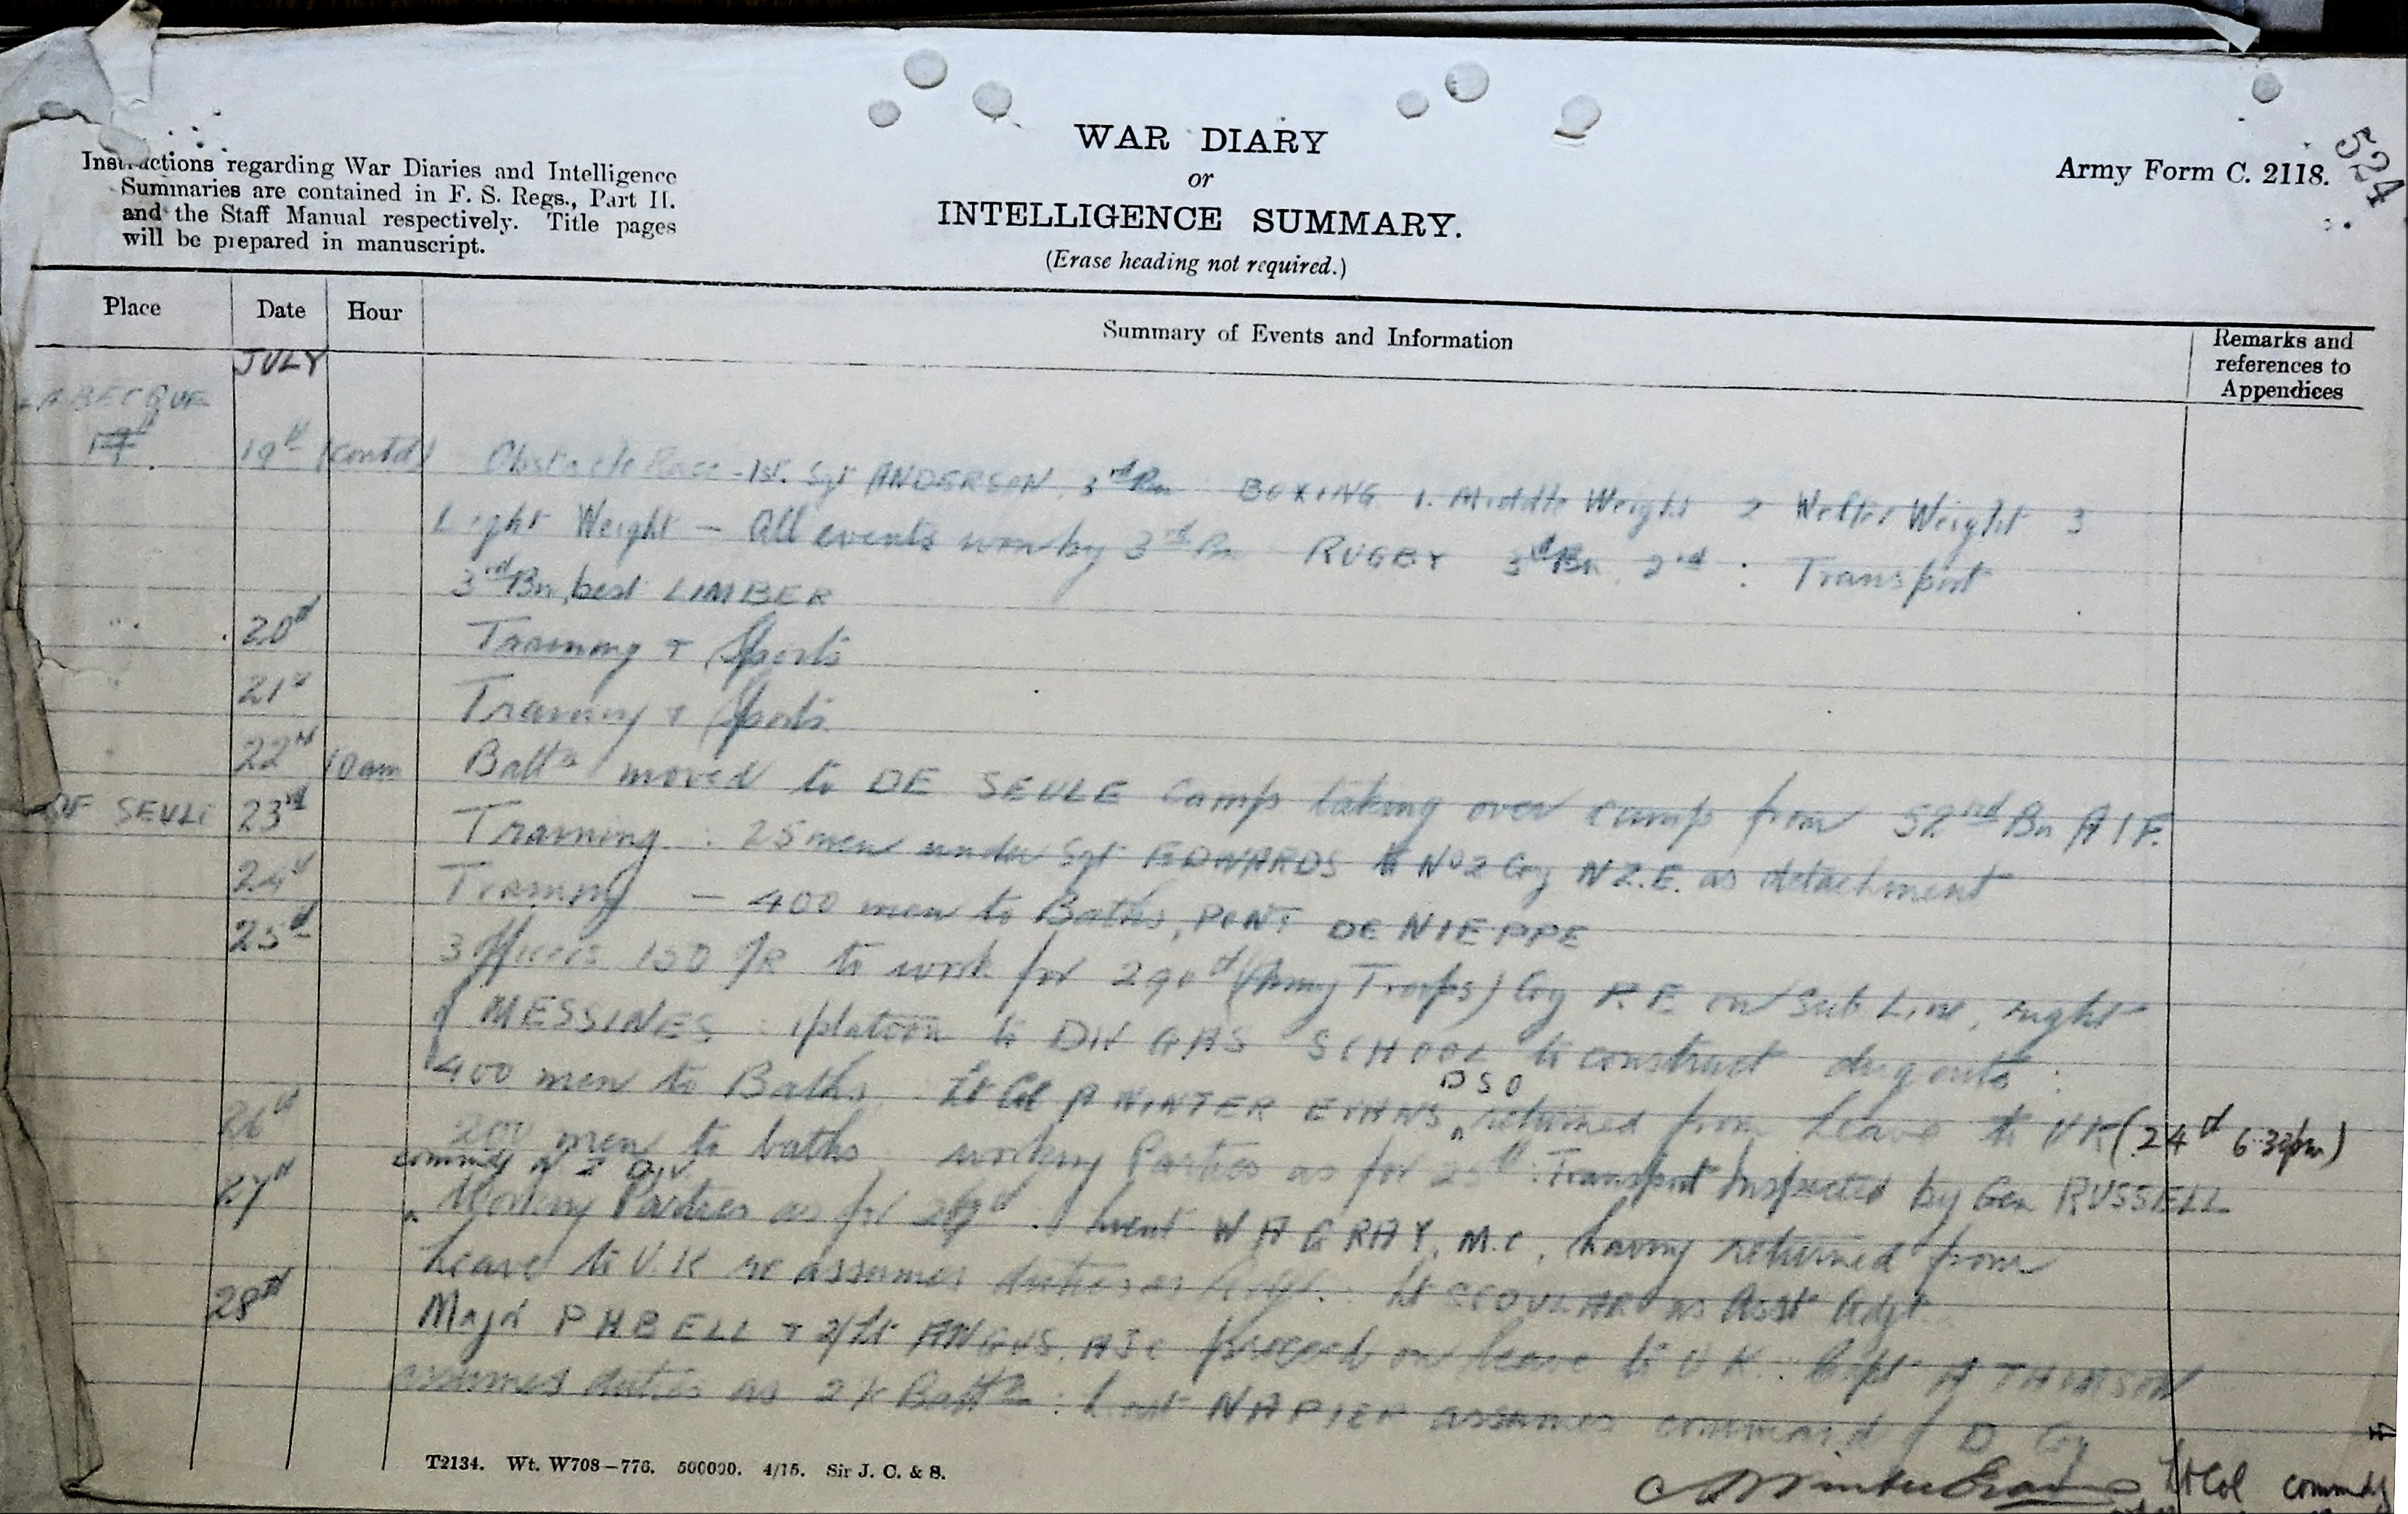 524
WAR DIARY
or
INTELLIGENCE SUMMARY.
(Erase heading not required.)
Army Form C. 2118.
Instructions regarding War Diaries and Intelligence
Summaries are contained in F. S. Regs., Part II.
and the Staff Manual respectively. Title pages
will be prepared in manuscript.
Place Date Hour Summary of Events and Information Remarks and references to Appendices
JULY
LA BECQUE
19th (contd) Obstacle Race - 1st. Sgt ANDERSON, 3rd Bn BOXING 1. Middle Weight 2 Welter Weight 3
Light Weight — All events won by 3rd Bn RUGBY 3rd Bn 2nd : Transport
3rd Bn, best LIMBER
20th Training + Sports
21st Training + Sports
22nd 10am Battn moved to DE SEULE Camp taking over camp from 52nd Bn AIF.
DE SEULE 23rd Training : 25 men under Sgt EDWARDS to No 2 Coy N.Z.E. as detachment
24th Training — 400 men to Baths, PONT DE NIEPPE
25th 3 Officers 150 O/R to work for (Army Troops) Coy R.E on Sub Line, right
of MESSINES : 1 platoon to DIV GAS SCHOOL to construct dug outs :
400 men to Baths. Lt Col A WINTER EVANS DSO returned from Leave to UK (24th 6.30pm)
26th 200 men to baths, working Parties as for 25th : Transport Inspected by Gen RUSSELL
commdg N Z DIV
27th Working Parties as for 26th . Lieut W A GRAY, M.C, having returned from
Leave to U.K re assumes duties as Adjt. : Lt SCOULAR as Asst Adjt
28th Major P H BELL + 2/Lt ANGUS, ASC proceed on leave to U K : Capt A THOMSON
assumes duties as 2/c Battn : Lieut NAPIER assumes command of D Coy
A Winter Evans Lt Col commdg
T2134. Wt. W708—776. 500000. 4/15. Sir J. C. & S.